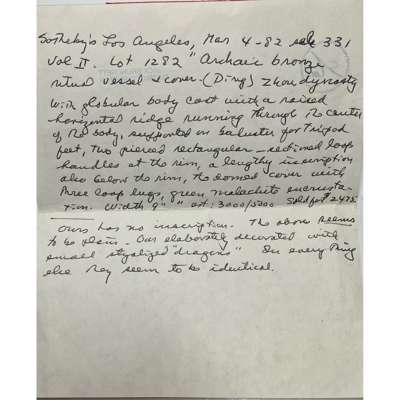 Sotheby's Los Angeles, Mar 4-82 sale 331
Vol II. Lot 1282 "Archaic bronze
ritual vessel & cover - (Ding) Zhou dynasty
With globular body cast with a raised
horizontal ridge running through the center
of the body, supported on baluster for Tripod
feet, two pierced rectangular - sectioned loop
handles at the rim, a lengthy inscription
also below the rim, the domed cover with
three loop lugs, green malachite encrusta-
tion. Width 9" est: 3000/5000 Sold for $2475
Ours has no inscription. The above seems
to be plain - Our elaborately decorated with
small stylized "dragons" In everything
else they seem to be identical.